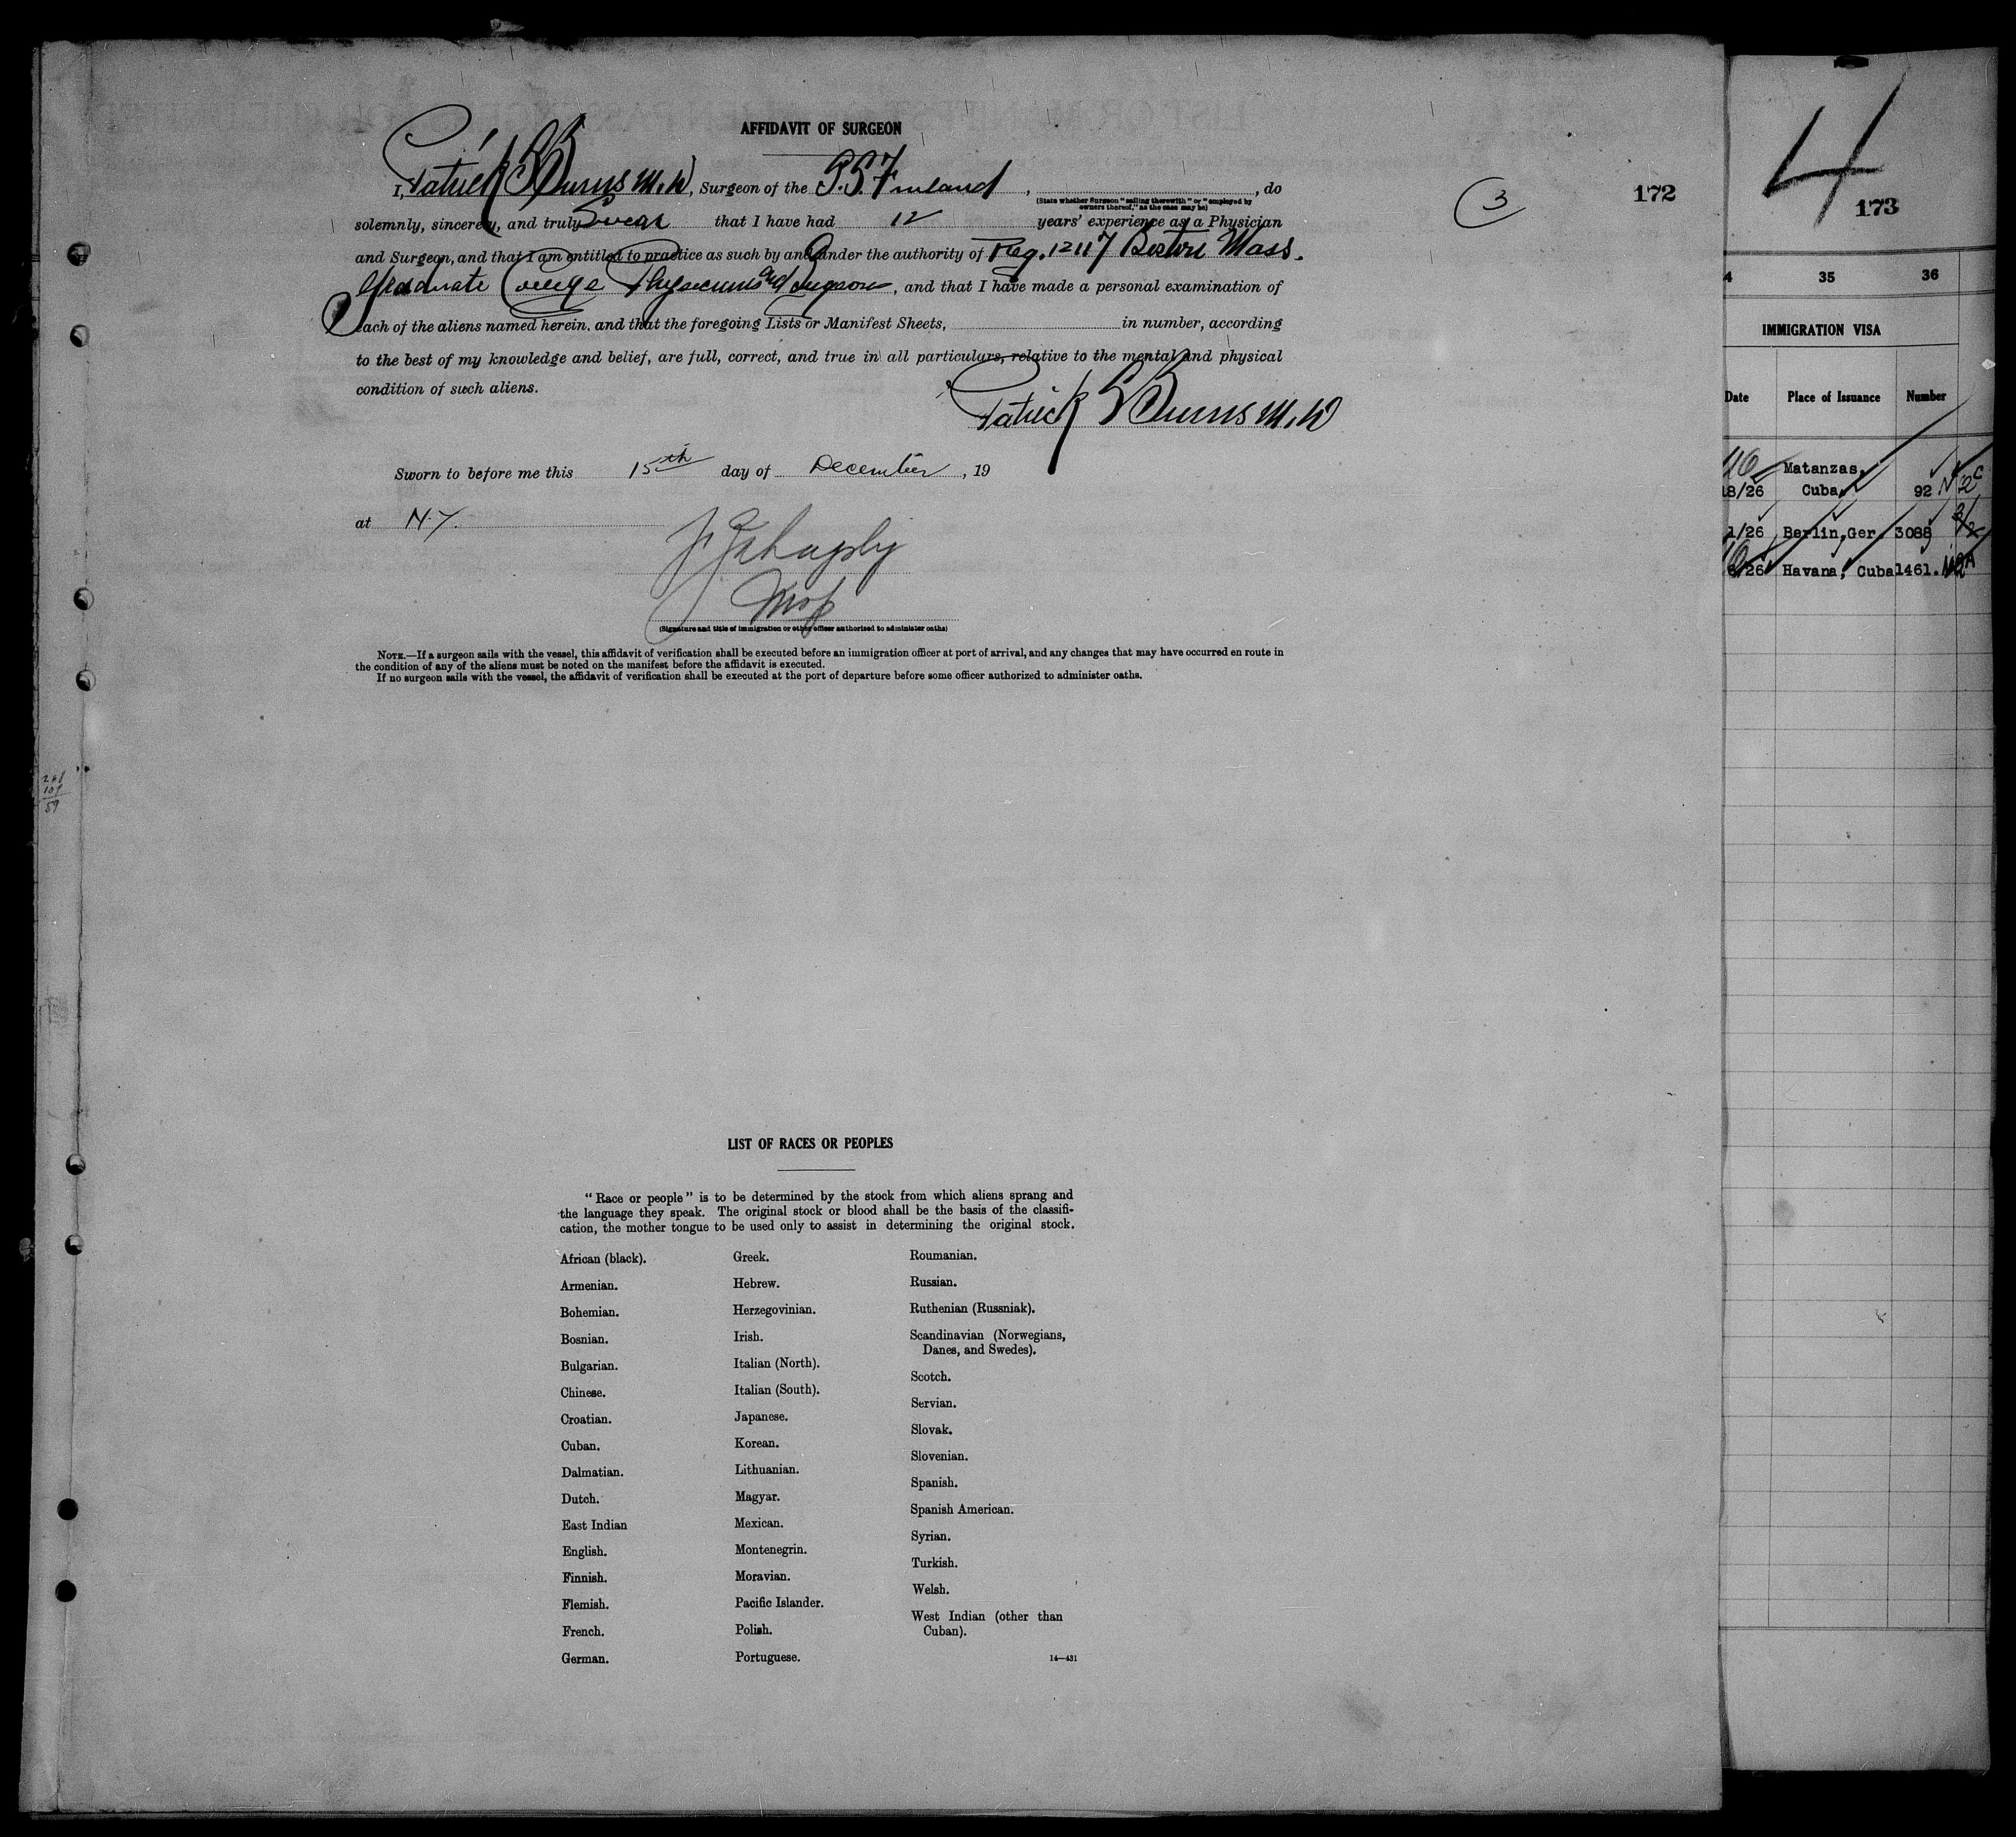 AFFIDAVIT OF SURGEON
I, Patrick S Burns M.D, Surgeon of the S.S Finland, , do
(State whether Surgeon "sailing therewith" or "employed by
owners thereof," as the case may be)
solemnly, sincerely, and truly Swear that I have had 12 years' experience as a Physician
and Surgeon, and that I am entitled to practice as such by and under the authority of Reg. 12117 Boston Mass.
Graduate College Physicians and Surgeons, and that I have made a personal examination of
each of the aliens named herein, and that the foregoing Lists or Manifest Sheets, in number, according
to the best of my knowledge and belief, are full, correct, and true in all particulars, relative to the mental and physical
condition of such aliens.
Patrick S Burns M.D
Sworn to before me this 15th day of December, 19
at N.Y.
(Signature and title of immigration or other officer authorized to administer oaths)
NOTE.—If a surgeon sails with the vessel, this affidavit of verification shall be executed before an immigration officer at port of arrival, and any changes that may have occurred en route in
the condition of any of the aliens must be noted on the manifest before the affidavit is executed.
If no surgeon sails with the vessel, the affidavit of verification shall be executed at the port of departure before some officer authorized to administer oaths.
3
172
LIST OF RACES OR PEOPLES
"Race or people" is to be determined by the stock from which aliens sprang and
the language they speak. The original stock or blood shall be the basis of the classifi-
cation, the mother tongue to be used only to assist in determining the original stock.
African (black).
Armenian.
Bohemian.
Bosnian.
Bulgarian.
Chinese.
Croatian.
Cuban.
Dalmatian.
Dutch.
East Indian
English.
Finnish.
Flemish.
French.
German.
Greek.
Hebrew.
Herzegovinian.
Irish.
Italian (North).
Italian (South).
Japanese.
Korean.
Lithuanian.
Magyar.
Mexican.
Montenegrin.
Moravian.
Pacific Islander.
Polish.
Portuguese.
Roumanian.
Russian.
Ruthenian (Russniak).
Scandinavian (Norwegians,
Danes, and Swedes).
Scotch.
Servian.
Slovak.
Slovenian.
Spanish.
Spanish American.
Syrian.
Turkish.
Welsh.
West Indian (other than
Cuban).
14—431
4
173
4 35 36
IMMIGRATION VISA
Date Place of Issuance Number
Matanzas,
18/26 Cuba 92
1/26 Berlin, Ger. 3088
6/26 Havana, Cuba 1461.